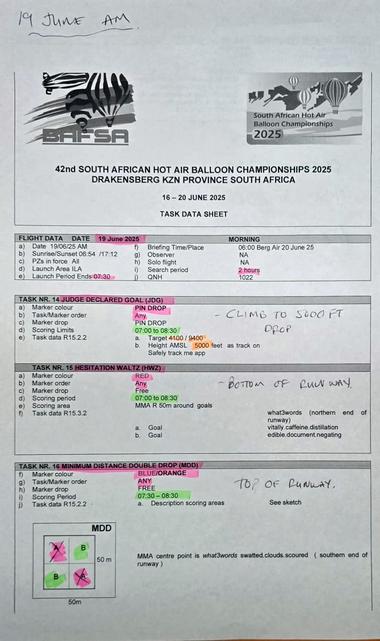 19 JUNE AM
BAFSA
South African Hot Air
Balloon Championships
2025
42nd SOUTH AFRICAN HOT AIR BALLOON CHAMPIONSHIPS 2025
DRAKENSBERG KZN PROVINCE SOUTH AFRICA
16 – 20 JUNE 2025
TASK DATA SHEET
FLIGHT DATA DATE 19 June 2025 MORNING
a) Date 19/06/25 AM f) Briefing Time/Place 06:00 Berg Air 20 June 25
b) Sunrise/Sunset 06:54 /17:12 g) Observer NA
c) PZs in force All h) Solo flight NA
d) Launch Area ILA i) Search period 2 hours
e) Launch Period Ends 07:30 j) QNH 1022
TASK NR. 14 JUDGE DECLARED GOAL (JDG)
a) Marker colour PIN DROP
b) Task/Marker order Any
c) Marker drop PIN DROP
d) Scoring Limits 07:00 to 08:30
e) Task data R15.2.2 a. Target 4100 / 9400
b. Height AMSL 5000 feet as track on
Safely track me app
- CLIMB TO 5000 FT
DROP
TASK NR. 15 HESITATION WALTZ (HWZ)
a) Marker colour RED
b) Marker order Any
c) Marker drop Free
d) Scoring period 07:00 to 08:30
e) Scoring area MMA R 50m around goals
f) Task data R15.3.2 what3words (northern end of
runway)
a. Goal vitally.caffeine.distillation
b. Goal edible.document.negating
- BOTTOM OF RUNWAY.
TASK NR. 16 MINIMUM DISTANCE DOUBLE DROP (MDD)
f) Marker colour BLUE/ORANGE
g) Task/Marker order ANY
h) Marker drop FREE
i) Scoring Period 07:30 – 08:30
j) Task data R15.2.2 a. Description scoring areas See sketch
TOP OF RUNWAY.
MDD
A B
B A
50 m
50m
MMA centre point is what3words swatted.clouds.scoured ( southern end of
runway )